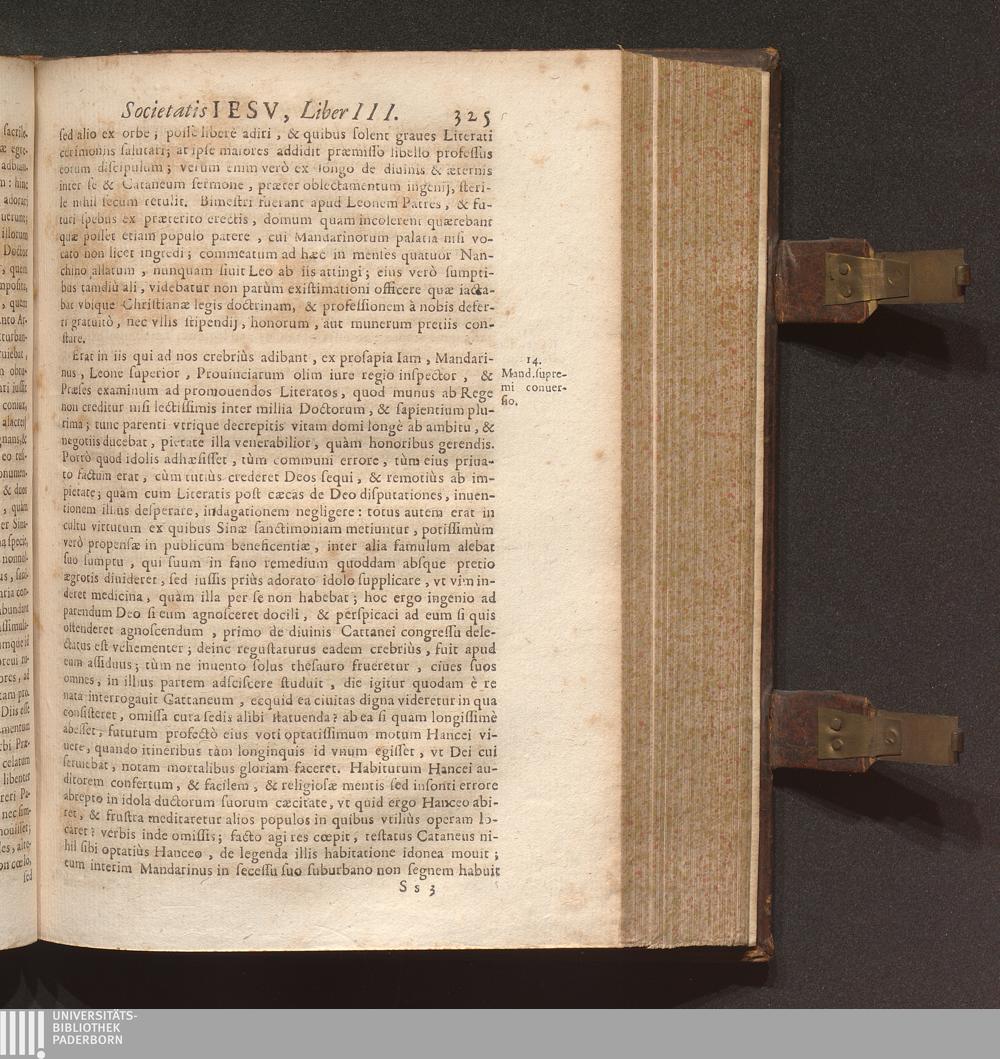 Societatis IESV, Liber III. 325
sed alio ex orbe; posse liberè adiri, & quibus solent graues Literati
cerimoniis salutari; at ipse maiores addidit præmisso libello professus
eorum discipulum; verùm enim verò ex longo de diuinis & æternis
inter se & Cataneum sermone, præter oblectamentum ingenij, steri-
le nihil secum retulit. Bimestri fuerant apud Leonem Patres, & fu-
turi spebus ex præterito erectis, domum quam incolerent quærebant
quæ posset etiam populo patere, cui Mandarinorum palatia nisi vo-
cato non licet ingredi; commeatum ad hæc in menses quatuor Nan-
chino allatum, nunquam siuit Leo ab iis attingi; eius verò sumpti-
bus tamdiù ali, videbatur non parùm existimationi officere quæ iacta-
bat vbique Christianæ legis doctrinam, & professionem à nobis defer-
ri gratuitò, nec vllis stipendij, honorum, aut munerum pretiis con-
stare.
Erat in iis qui ad nos crebriùs adibant, ex prosapia Iam, Mandari-
nus, Leone superior, Prouinciarum olim iure regio inspector, &
Præses examinum ad promouendos Literatos, quod munus ab Rege
non creditur nisi lectissimis inter millia Doctorum, & sapientium plu-
rima; tunc parenti vtrique decrepitis vitam domi longè ab ambitu, &
negotiis ducebat, pietate illa venerabilior, quàm honoribus gerendis.
Porrò quod idolis adhæsisset, tùm communi errore, tùm eius priua-
to factum erat, cùm tutiùs crederet Deos sequi, & remotiùs ab im-
pietate; quàm cum Literatis post cæcas de Deo disputationes, inuen-
tionem illius desperare, indagationem negligere: totus autem erat in
cultu virtutum ex quibus Sinæ sanctimoniam metiuntur, potissimùm
verò propensæ in publicum beneficentiæ, inter alia famulum alebat
suo sumptu, qui suum in fano remedium quoddam absque pretio
ægrotis diuideret, sed iussis priùs adorato idolo supplicare, vt vim in-
deret medicina, quàm illa per se non habebat; hoc ergo ingenio ad
parendum Deo si eum agnosceret docili, & perspicaci ad eum si quis
ostenderet agnoscendum, primo de diuinis Cattanei congressu dele-
ctatus est vehementer; deinc regustaturus eadem crebriùs, fuit apud
eum assiduus; tùm ne inuento solus thesauro frueretur, ciues suos
omnes, in illius partem adsciscere studuit, die igitur quodam è re
nata interrogauit Cattaneum, ecquid ea ciuitas digna videretur in qua
consisteret, omissa cura sedis alibi statuenda? ab ea si quam longissimè
abesset, futurum profectò eius voti optatissimum motum Hancei vi-
uere, quando itineribus tàm longinquis id vnum egisset, vt Dei cui
seruiebat, notam mortalibus gloriam faceret. Habiturum Hancei au-
ditorem confertum, & facilem, & religiosæ mentis sed insonti errore
abrepto in idola ductorum suorum cæcitate, vt quid ergo Hanceo abi-
ret, & frustra meditaretur alios populos in quibus vtiliùs operam lo-
caret? verbis inde omissis; facto agi res cœpit, testatus Cataneus ni-
hil sibi optatiùs Hanceo, de legenda illis habitatione idonea mouit;
cum interim Mandarinus in secessu suo suburbano non segnem habuit
Ss 3
14.
Mand. supre-
mi conuer-
sio.
UNIVERSITÄTS-
BIBLIOTHEK
PADERBORN